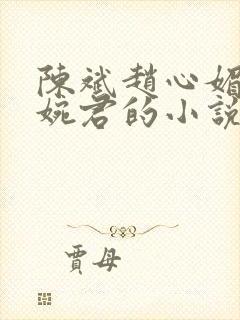 陳斌趙心媚
婉君的小說
賈母